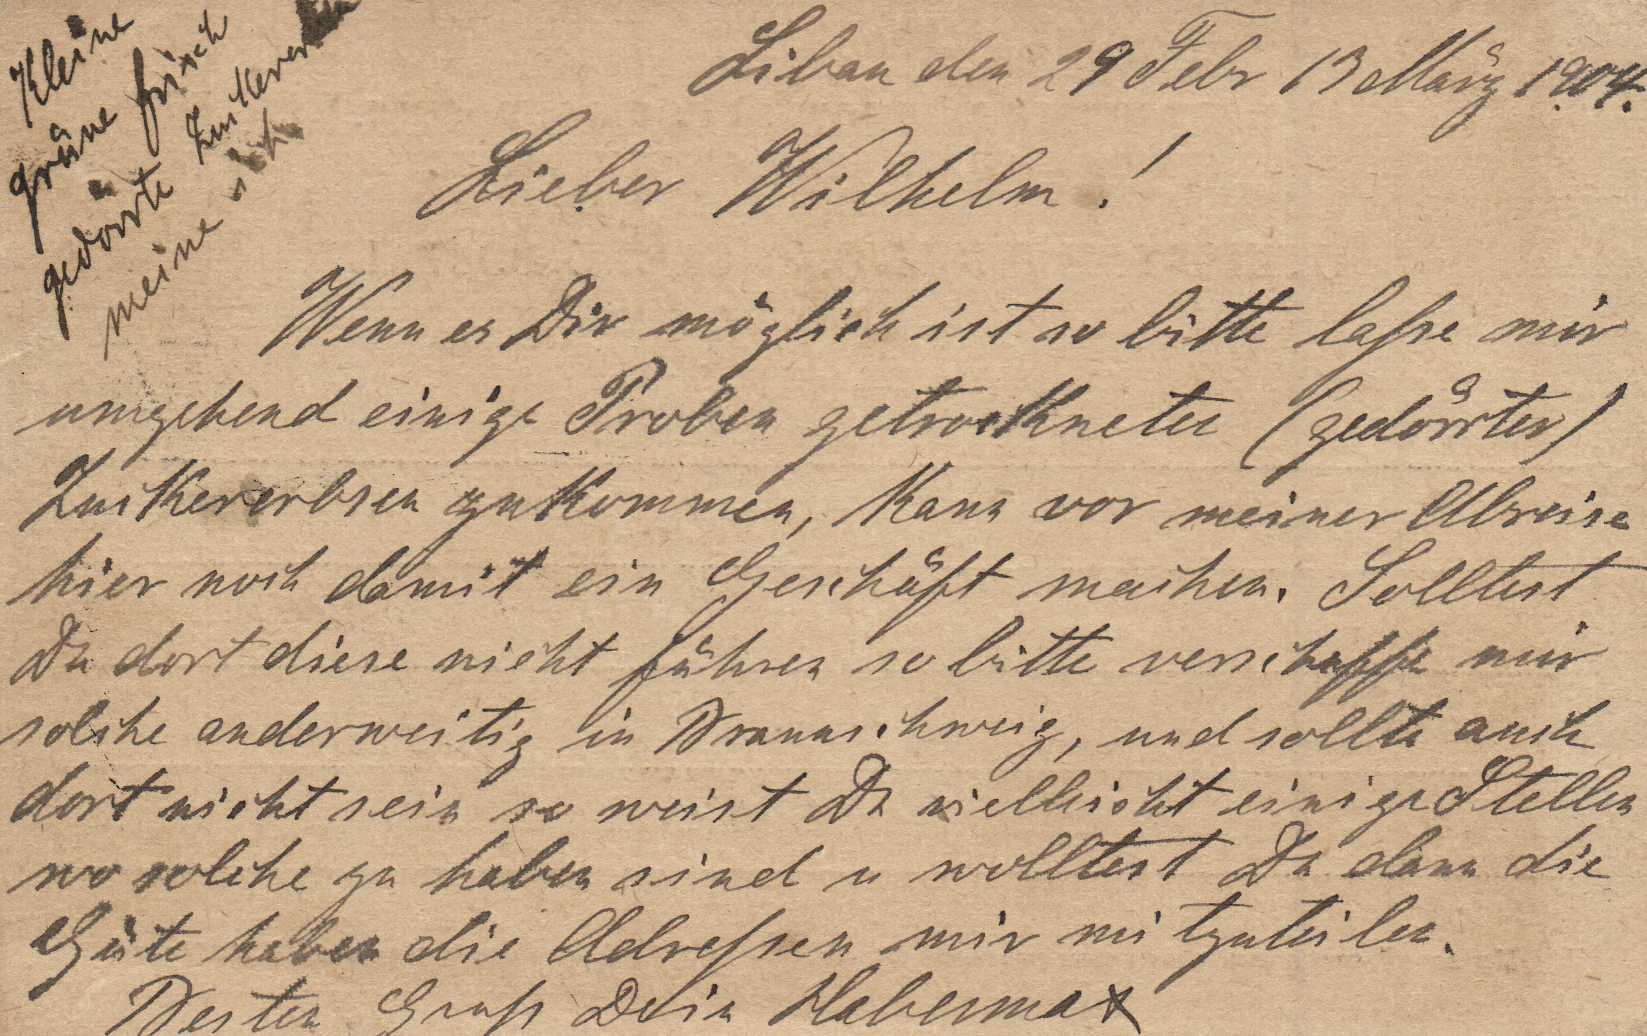 Kleine
grüne frisch
gedörrte Zuckererbsen
meine ich
Libau den 29 Febr 13 März 1904.
Lieber Wilhelm!
Wenn es Dir möglich ist so bitte laße mir
umgehend einige Proben getrockneter (gedörrter)
Zuckererbsen zukommen, kann vor meiner Abreise
hier noch damit ein Geschäft machen. Solltest
Du dort diese nicht führen so bitte verschaffe mir
solche anderweitig in Braunschweig, und sollte auch
dort nicht sein so weist Du vielleicht einige Stellen
wo solche zu haben sind u wolltest Du dann die
Güte haben die Adreßen mir mitzuteilen.
Besten Gruß Dein